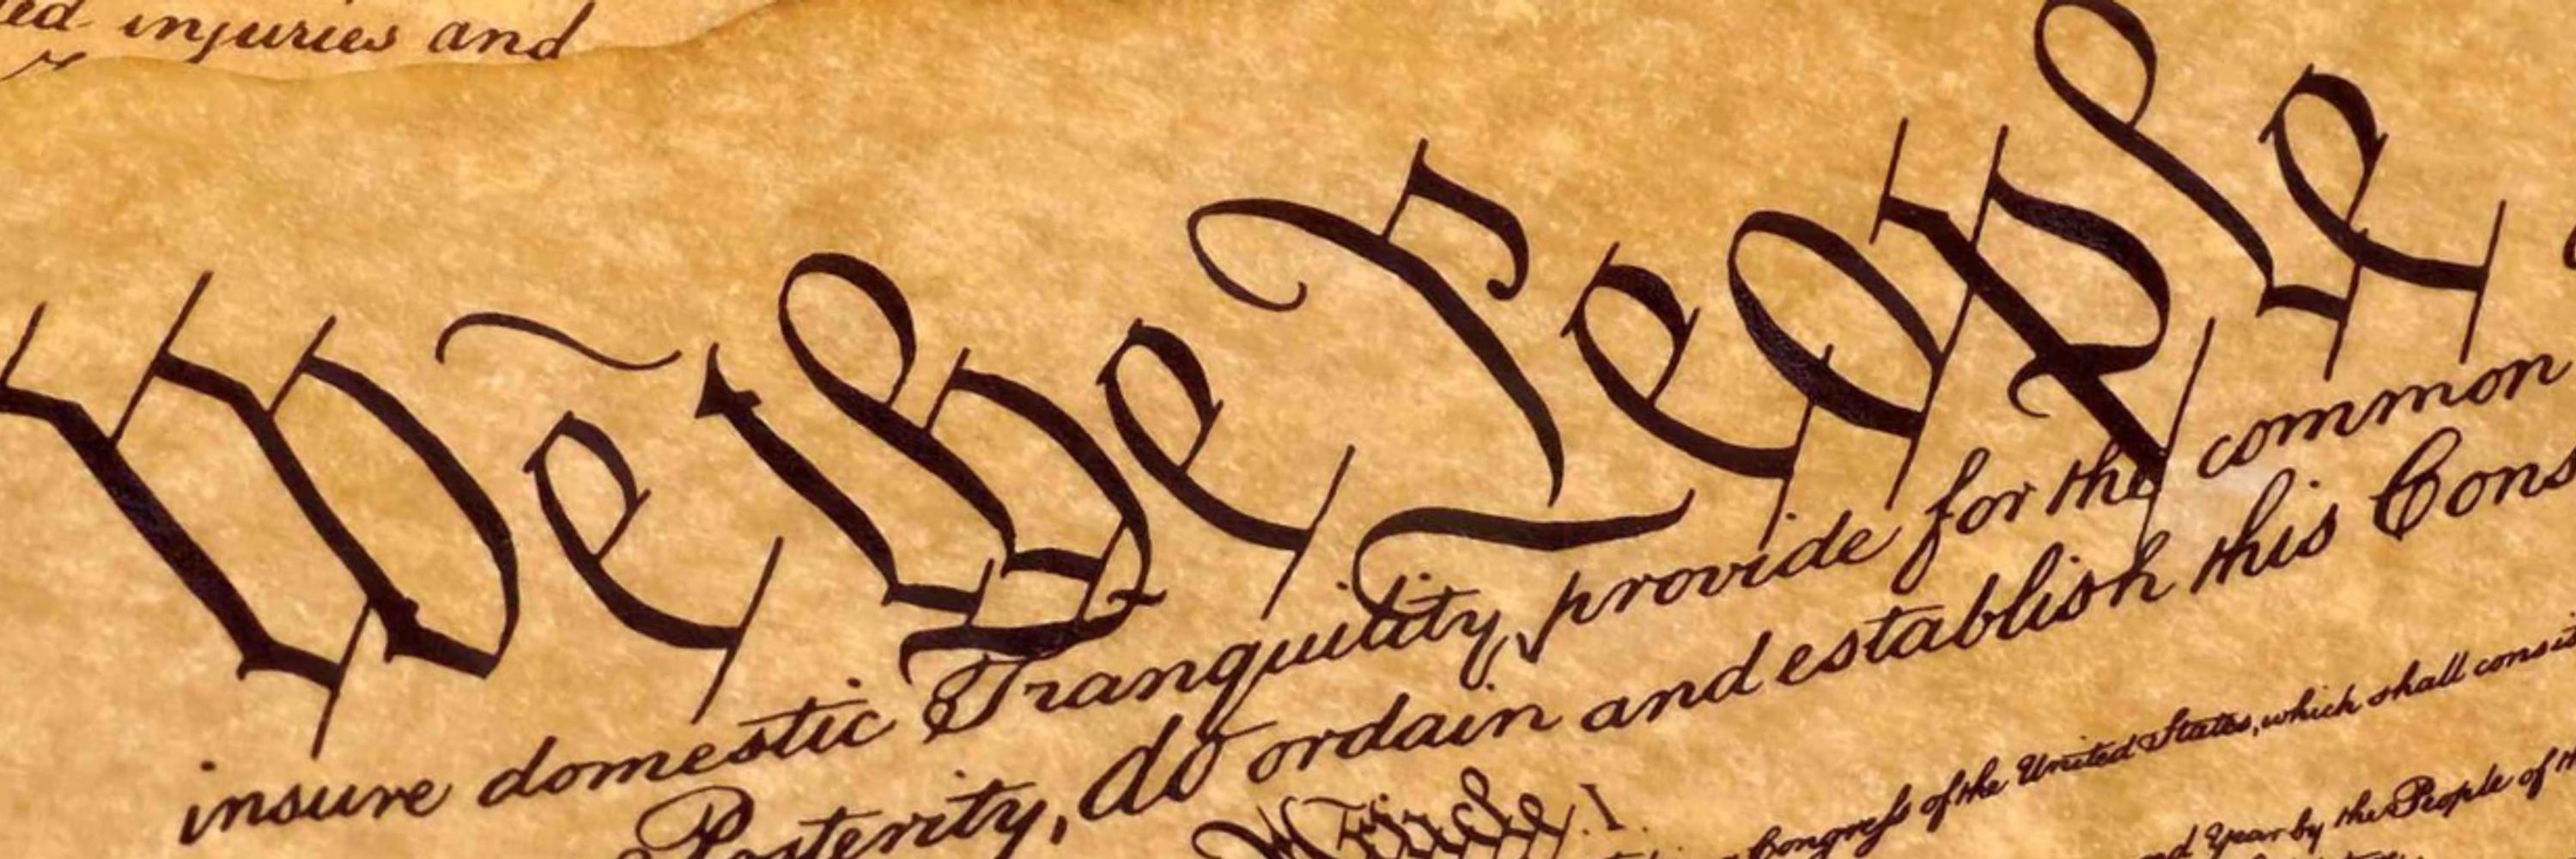 ed injuries and
We the People
insure domestic Tranquility, provide for the common
Posterity, do ordain and establish this Cons
Article. I.
Congress of the United States, which shall consi
nd Year by the People of th